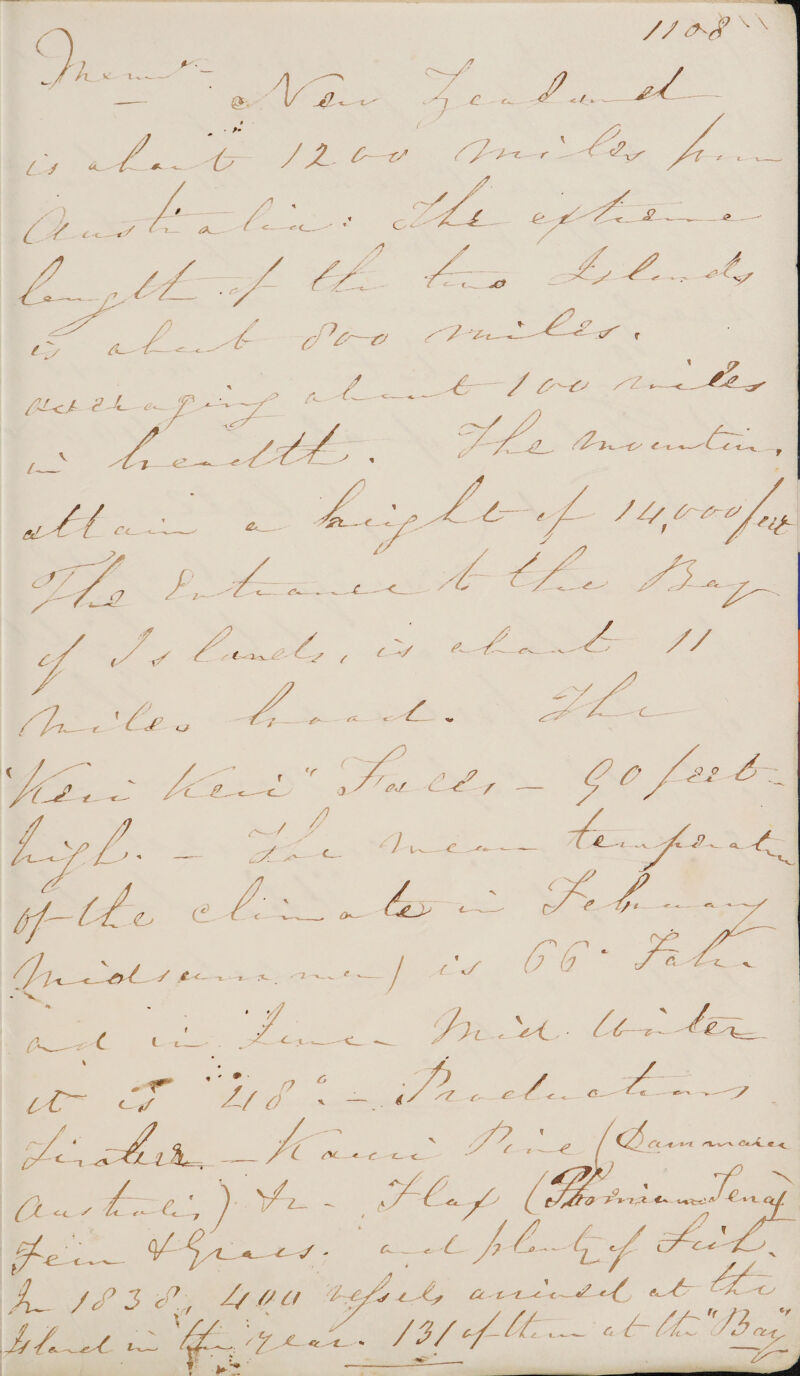 1108
Memdm
New Zealand
is about 1200 miles from
Australia: The extreme
length of the two Islands
is about 800 miles.
averaging about 100 miles
in breadth. The mountins
attain a height of 14,000 feet
The Entrance to the Bay
of Islands, is about 11
miles broad. The
"Keri Keri" Falls - 90 feet
high. - The mean temperature
of the climate in February
Midsummer) is 66° Fahr
and in June Mid Winter
it is 48°. - Productions
Timber. - Kauri Pine (Dammara
Australis) &c - Flax (Phormium Tenax)
Fern & Grass. and plenty of Fish.
In 1838, 400 vessels arrived at the
Island in the year. 131 of them at the "Bay"